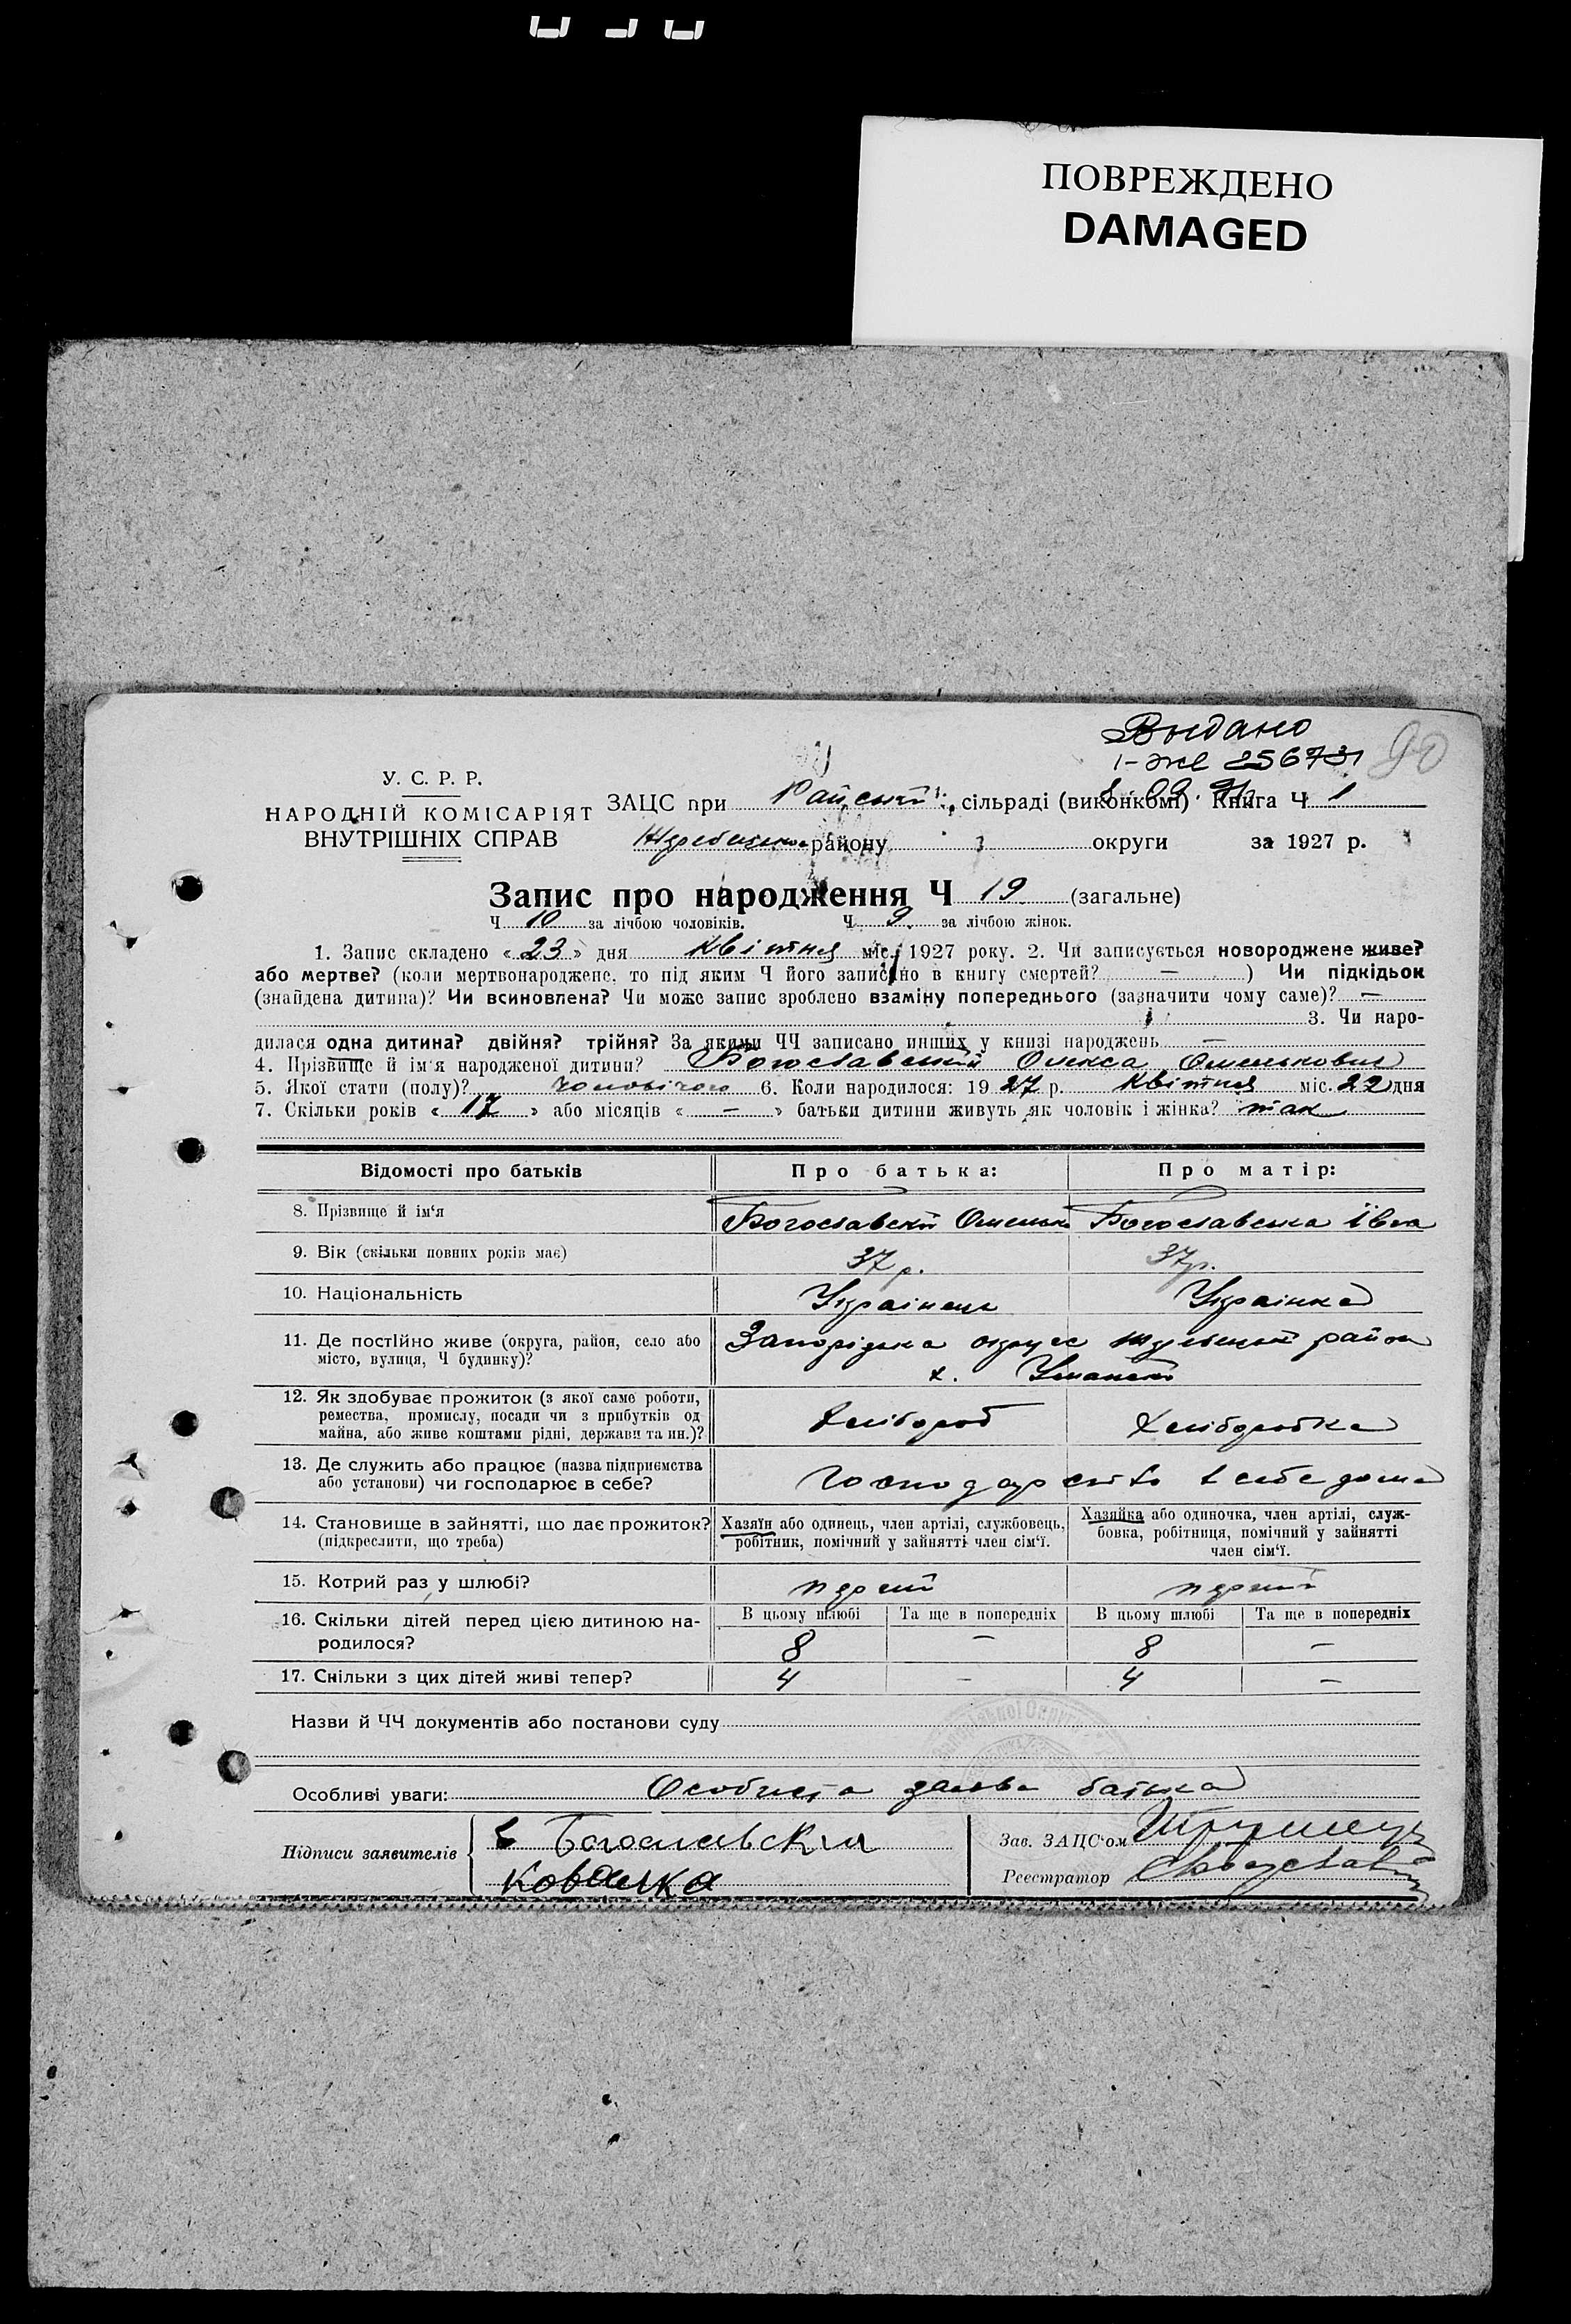 ПОВРЕЖДЕНО
DAMAGED
Выдано
1-ЖС 256731
90
У. С. Р. Р.
НАРОДНІЙ КОМІСАРІЯТ
ВНУТРІШНІХ СПРАВ
ЗАЦС при Райській сільраді (виконкомі) Книга Ч 1
району округи за 1927 р.
Запис про народження Ч 19 (загальне)
Ч 10 за лічбою чоловіків. Ч 9 за лічбою жінок.
1. Запис складено «23» дня квітня міс. 1927 року. 2. Чи записується новороджене живе?
або мертве? (коли мертвонароджене, то під яким Ч його записано в книгу смертей? — ) Чи підкідьок
(знайдена дитина)? Чи всиновлена? Чи може запис зроблено взаміну попереднього (зазначити чому саме)? —
3. Чи наро-
дилася одна дитина? двійня? трійня? За якими ЧЧ записано инших у книзі народжень —
4. Прізвище й ім'я народженої дитини? Богославський Олекса Омелькович
5. Якої стати (полу)? чоловічого 6. Коли народилося: 1927 р. квітня міс. 22 дня
7. Скільки років «17» або місяців « — » батьки дитини живуть як чоловік і жінка? так
Відомості про батьків Про батька: Про матір:
8. Прізвище й ім'я Богославский Омелько Богославська Івга
9. Вік (скільки повних років має) 37 р. 37 р.
10. Національність Українець Українка
11. Де постійно живе (округа, район, село або місто, вулиця, Ч будинку)? Запоріжка округа район
х.
12. Як здобуває прожиток (з якої саме роботи, ремества, промислу, посади чи з прибутків од майна, або живе коштами рідні, держави та ин.)? Хлібороб Хліборобка
13. Де служить або працює (назва підприємства або установи) чи господарює в себе? Господарство в себе дома
14. Становище в зайнятті, що дає прожиток? (підкреслити, що треба) Хазяїн або одинець, член артілі, службовець, робітник, помічний у зайнятті член сім'ї. Хазяйка або одиночка, член артілі, служ-бовка, робітниця, помічний у зайнятті член сім'ї.
15. Котрий раз у шлюбі? перший перший
16. Скільки дітей перед цією дитиною на-родилося? В цьому шлюбі Та ще в попередніх В цьому шлюбі Та ще в попередніх
8 — 8 —
17. Скільки з цих дітей живі тепер? 4 — 4 —
Назви й ЧЧ документів або постанови суду
Особливі уваги: Особиста заява батька
Підписи заявителів Богославский
Зав. ЗАЦС'ом
Реєстратор